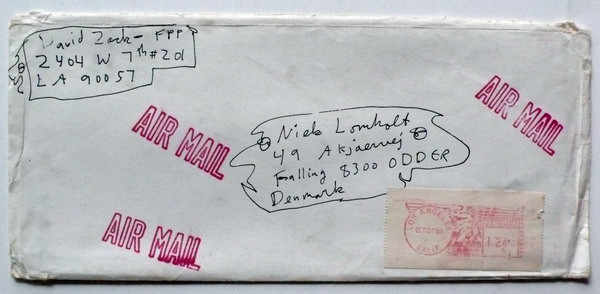 David Zack - FPP
2404 W 7th #201
LA 90057
AIR MAIL
AIR MAIL
Niels Lomholt
49 Akjaervej
Falling 8300 ODDER
Denmark
AIR MAIL
LOS ANGELES
CALIF